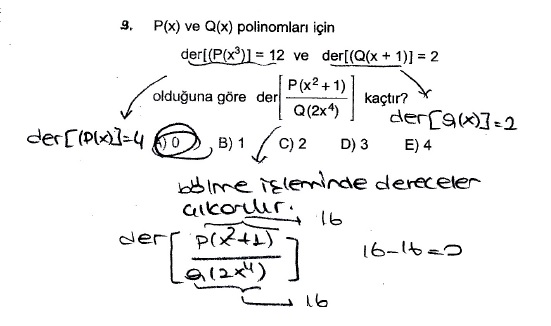 9. P(x) ve Q(x) polinomları için
der[(P(x³)] = 12 ve der[(Q(x + 1)] = 2
olduğuna göre der[P(x² + 1) / Q(2x⁴)] kaçtır?
der[(P(x)]=4
der[Q(x)]=2
A) 0 B) 1 C) 2 D) 3 E) 4
bölme işleminde dereceler
çıkarılır.
16
der[P(x²+1) / Q(2x⁴)]
16-16=0
16